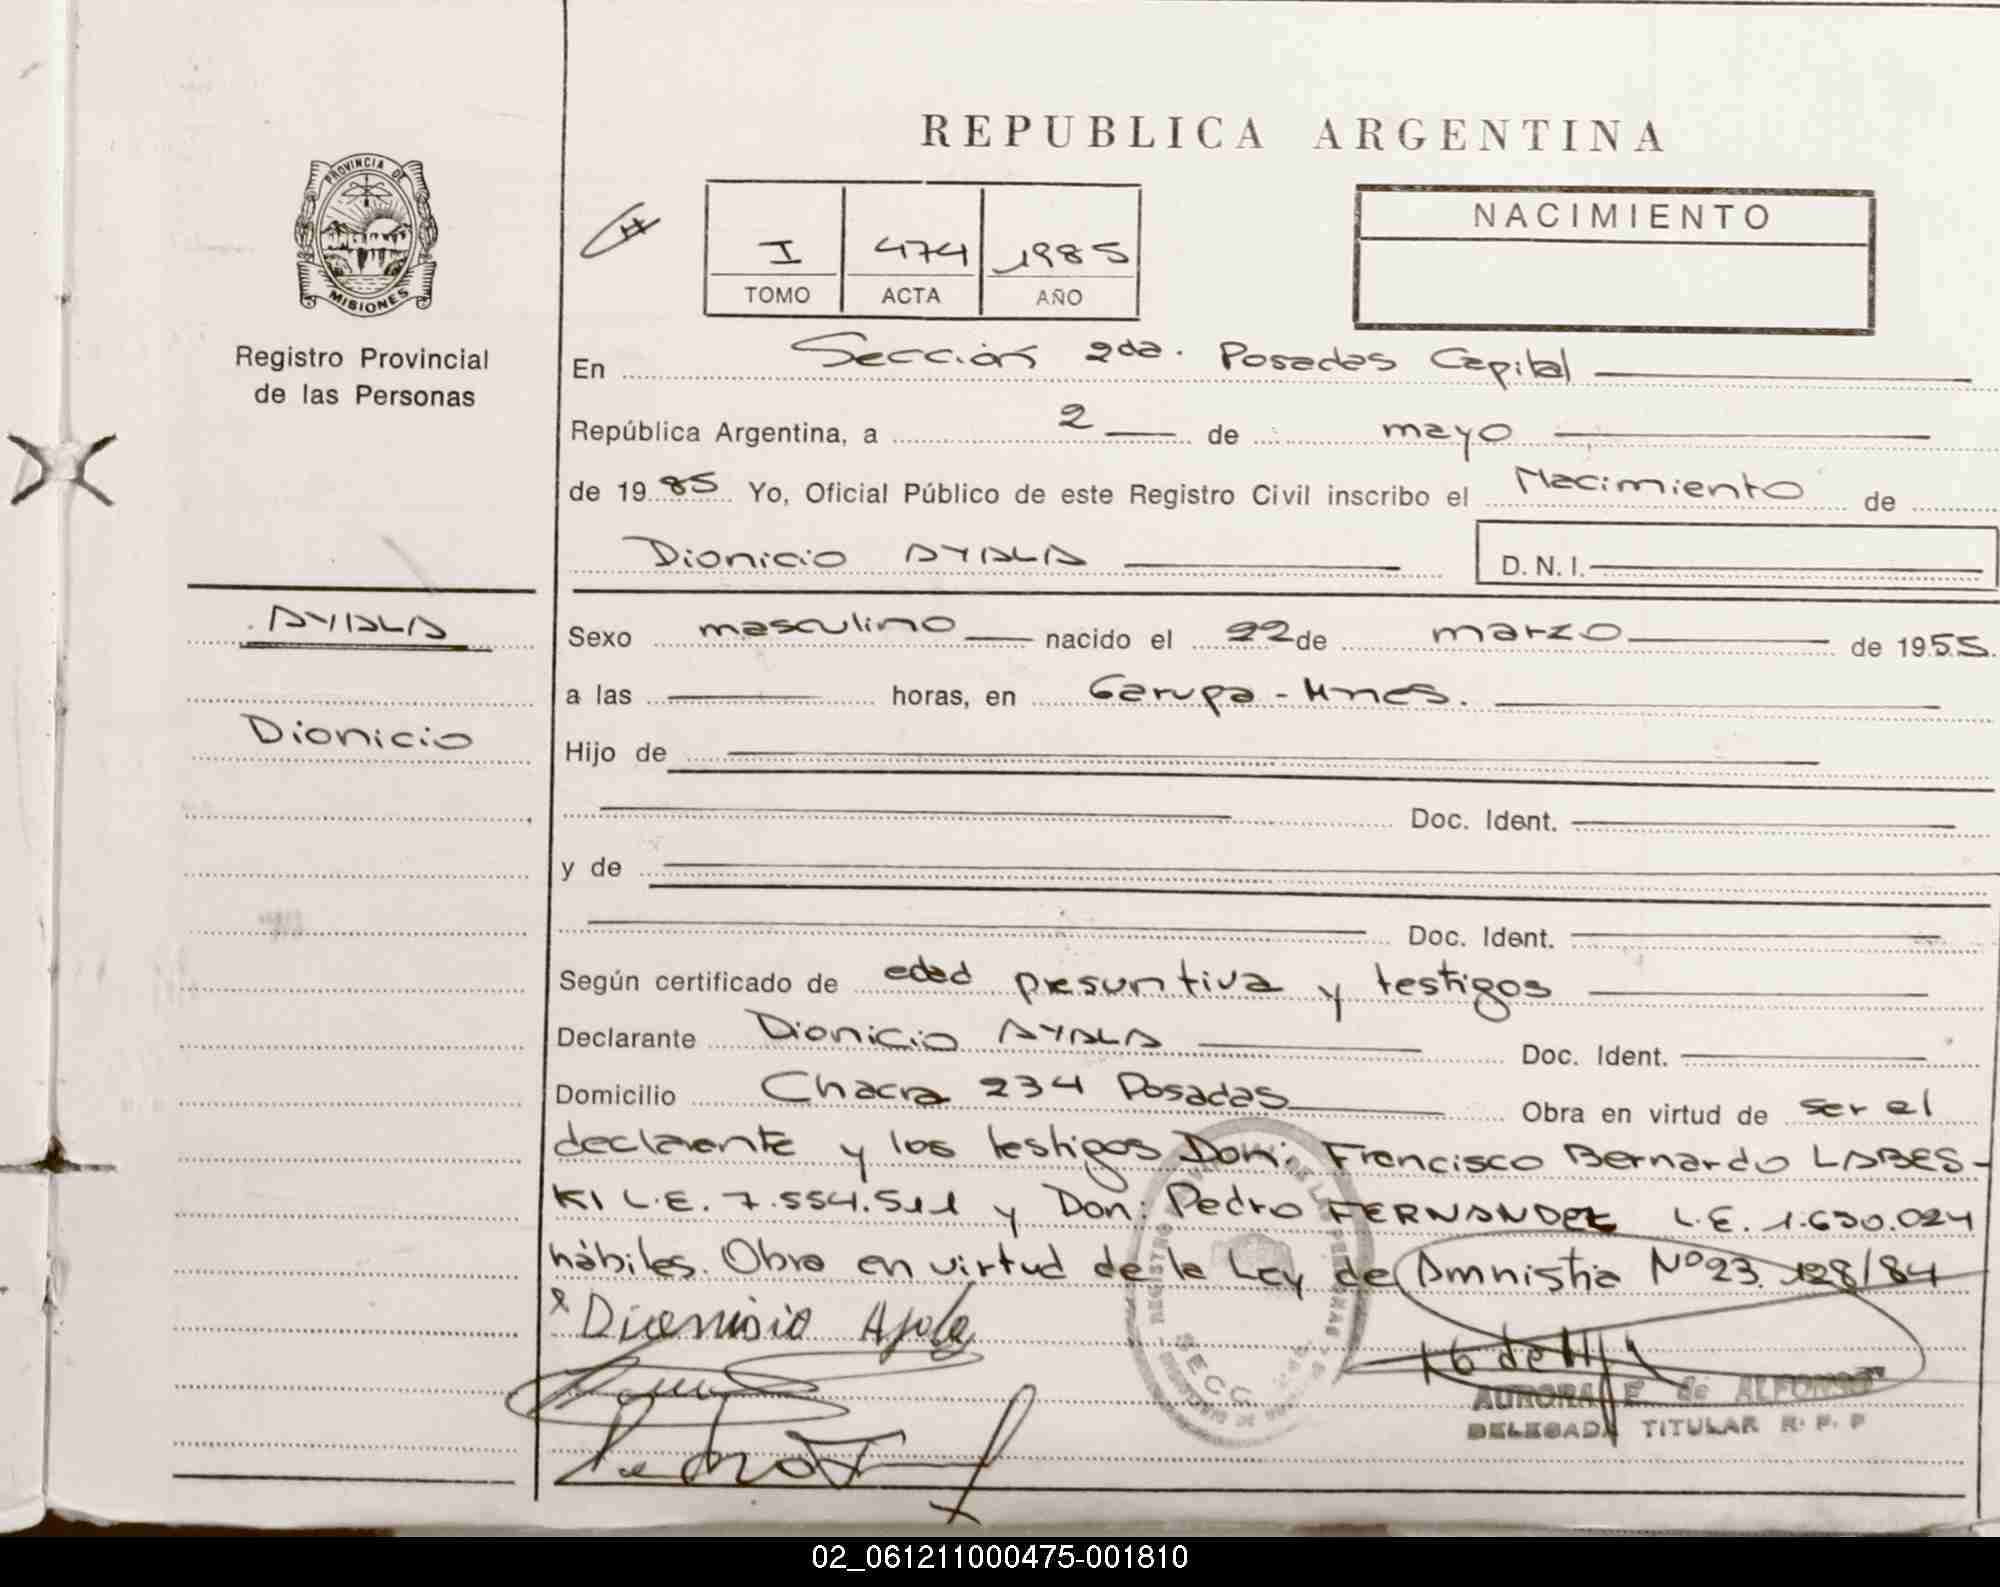 REPUBLICA ARGENTINA
PROVINCIA DE
MISIONES
Registro Provincial
de las Personas
I 474 1985
TOMO ACTA AÑO
NACIMIENTO
En Sección 2da. Posadas Capital
República Argentina, a 2 de mayo
de 1985 Yo, Oficial Público de este Registro Civil inscribo el Nacimiento de
Dionicio AYALA D.N.I.
AYALA
Dionicio
Sexo masculino nacido el 22 de marzo de 1955.
a las horas, en Garupa - Mnes.
Hijo de
Doc. Ident.
y de
Doc. Ident.
Según certificado de edad presuntiva y testigos
Declarante Dionicio AYALA Doc. Ident.
Domicilio Chacra 234 Posadas Obra en virtud de ser el
declarante y los testigos Don: Francisco Bernardo LABES-
KI L.E. 7.554.511 y Don: Pedro FERNANDEZ L.E. 1.630.024
hábiles. Obra en virtud de la Ley de Amnistia Nº 23.128/84
Dionisio Ayala
Pedro
AURORA E. de ALFONSO
DELEGADA TITULAR R. P. P
REGISTRO PERSONAS
SECC.
02_061211000475-001810